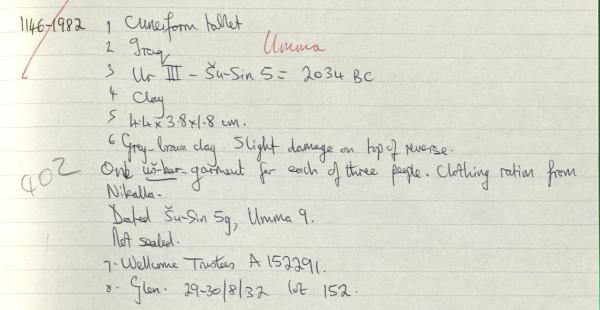 1146-1982 1 Cuneiform tablet
2 Iraq Umma
3 Ur III - Šu-Sin 5 = 2034 BC
4 Clay
5 4.4 x 3.8 x 1.8 cm.
6 Grey-brown clay. Slight damage on top of reverse.
402 One uš-bar garment for each of three people. Clothing ration from
Nikalla.
Dated Šu-Sin 5g, Umma 9.
Not sealed.
7. Wellcome Trustees A 152291.
8. Glen. 29-30/8/32 lot 152.